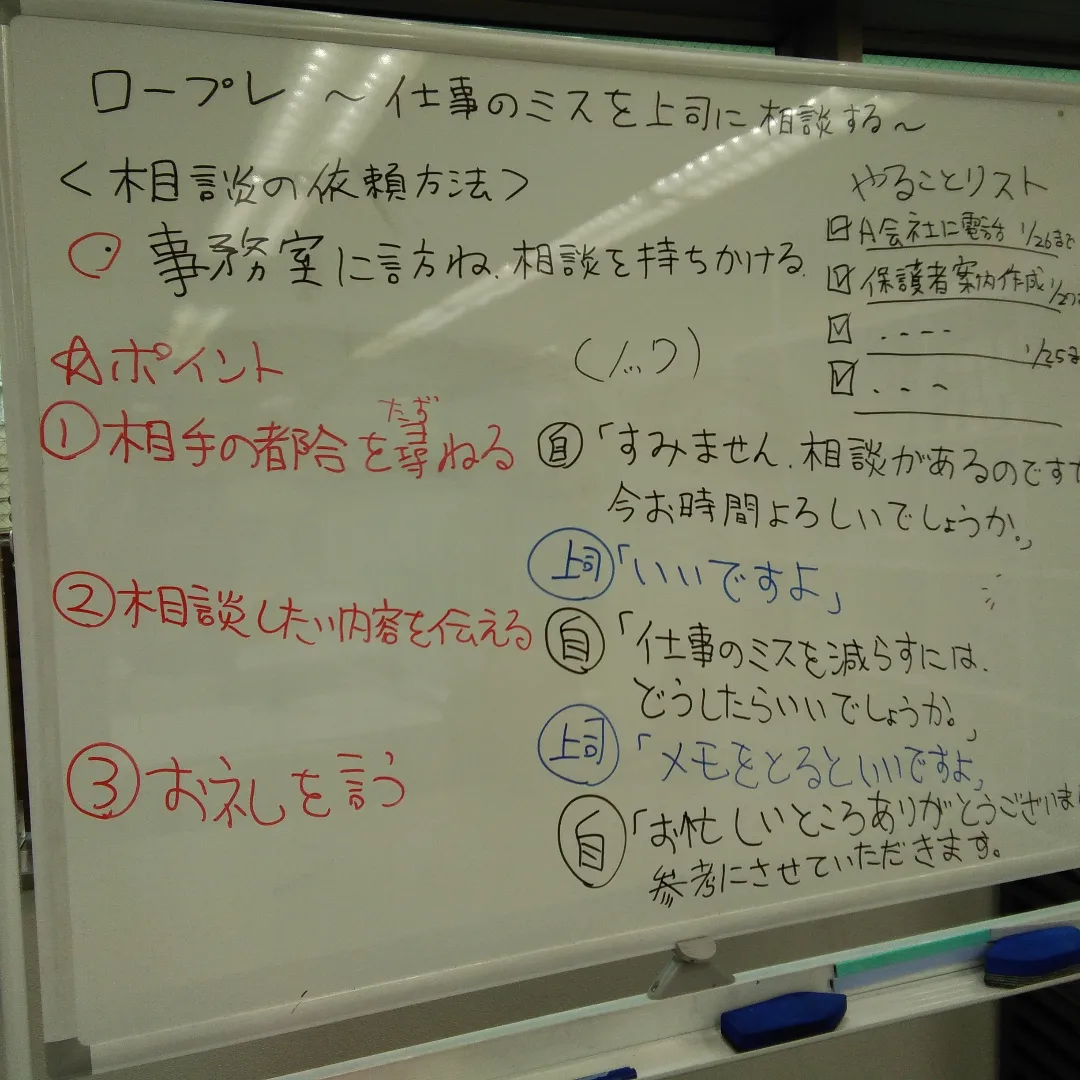 ロープレ ～仕事のミスを上司に相談する～
＜相談の依頼方法＞
事務室に訪ね、相談を持ちかける。
やることリスト
☑ A会社に電話 1/26まで
☑ 保護者案内作成 1/27
☑ ----
1/25ま
☑ ---
☆ポイント
①相手の都合を尋ねる
たず
②相談したい内容を伝える
③お礼を言う
(ノック)
自「すみません。相談があるのです
今お時間よろしいでしょうか。」
上司「いいですよ」
自「仕事のミスを減らすには、
どうしたらいいでしょうか。」
上司「メモをとるといいですよ」
自「お忙しいところありがとうございま
参考にさせていただきます。